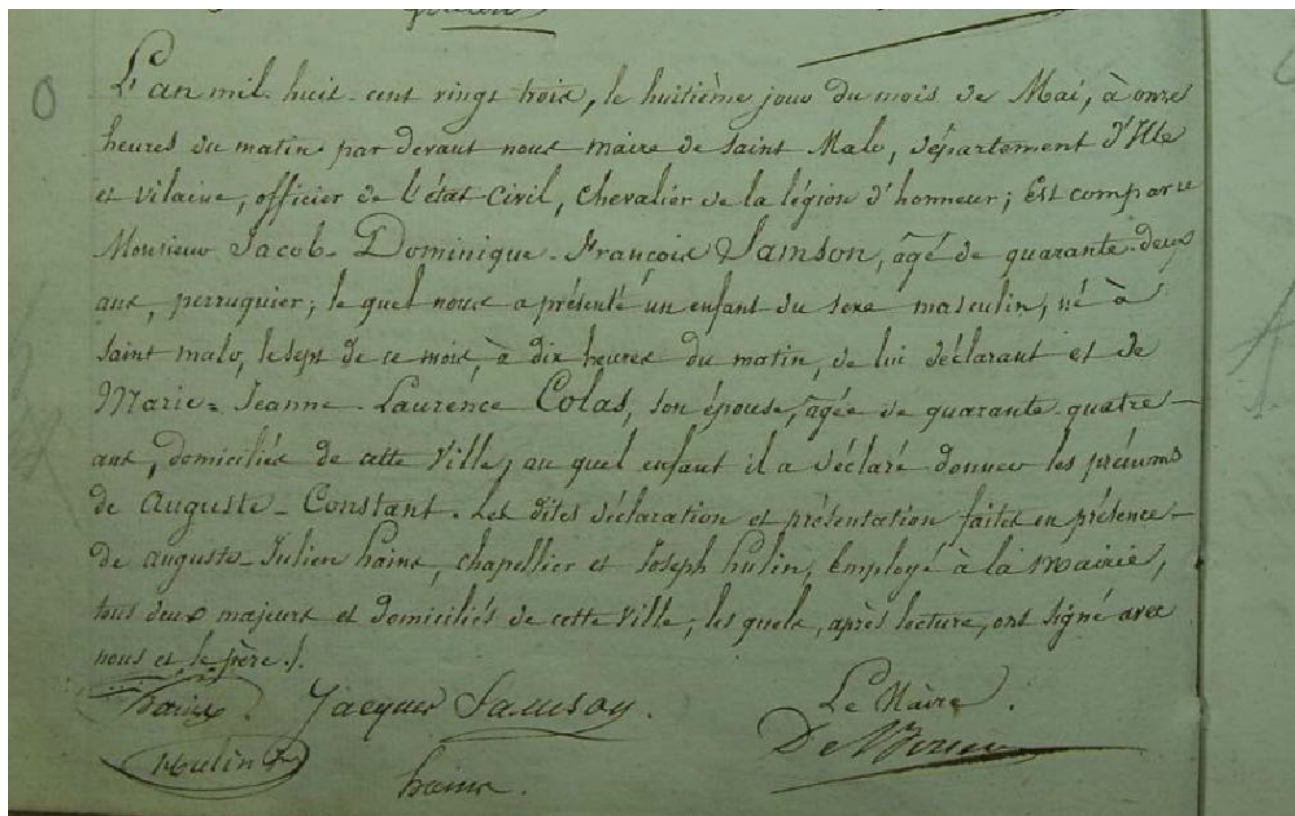 L'an mil huit cent vingt trois, le huitième jour du mois de Mai, à onze
heures du matin par devant nous maire de Saint Malo, département d'Ille
et Vilaine, officier de l'état-Civil, Chevalier de la légion d'honneur; Est comparu
Monsieur Jacob-Dominique-François Samson, âgé de quarante-deux
ans, perruquier; le quel nous a présenté un enfant du sexe masculin, né à
Saint malo, le sept de ce mois, à dix heures du matin, de lui déclarant et de
Marie=Jeanne-Laurence Colas, son épouse, âgée de quarante quatre
ans, domiciliés de cette Ville; au quel enfant il a déclaré donner les prénoms
de Auguste-Constant. Les dites déclaration et présentation faites en présence
de auguste-Julien hains, chapellier et Joseph hulin, Employé à la Mairie,
tous deux majeurs et domiciliés de cette Ville; les quels, après lecture, ont signé avec
nous et le père ./.
Jacques Samson.
Le Maire.
hulin